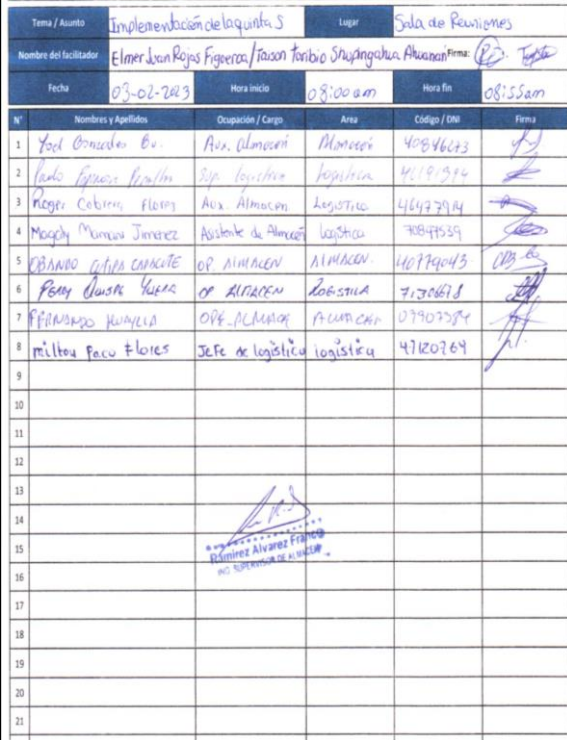 Tema / Asunto Implementación de la quinta S Lugar Sala de Reuniones
Nombre del facilitador Elmer Juan Rojas Figueroa / Jaison Toribio Shupingahua Ahuanari Firma:
Fecha 03-02-2023 Hora inicio 08:00 am Hora fin 08:55am
N° Nombres y Apellidos Ocupación / Cargo Area Código / DNI Firma
1 Yoel Gonzales Aux. almacén Almacén
2 Sup. logística Logística
3 Roger Cabrera Flores Aux. Almacen Logística
4 Magdy Mamani Jimenez Asistente de Almacén logística 70847539
5 OBANDO OP. AlMACEN AlMACEN. 40779043
6 PERCY QUISPE OP ALMACEN LOGISTICA
7 FERNANDO HUAYLLA OPE-ALMACE ALMACEN
8 milton Paco Flores Jefe de logística logística 47120769
9
10
11
12
13
14
Ramirez Alvarez Franco
15
ING. SUPERVISOR DE ALMACEN
16
17
18
19
20
21